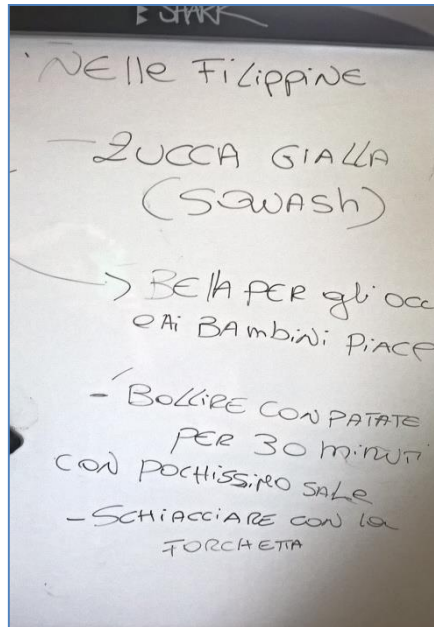 SHARK
NELLE FILIPPINE
- ZUCCA GIALLA
(SQUASH)
→ BELLA PER gli OCC
E AI BAMBINI PIACE
- BOLLIRE CON PATATE
PER 30 MINUTI
CON POCHISSIMO SALE
- SCHIACCIARE CON LA
FORCHETTA